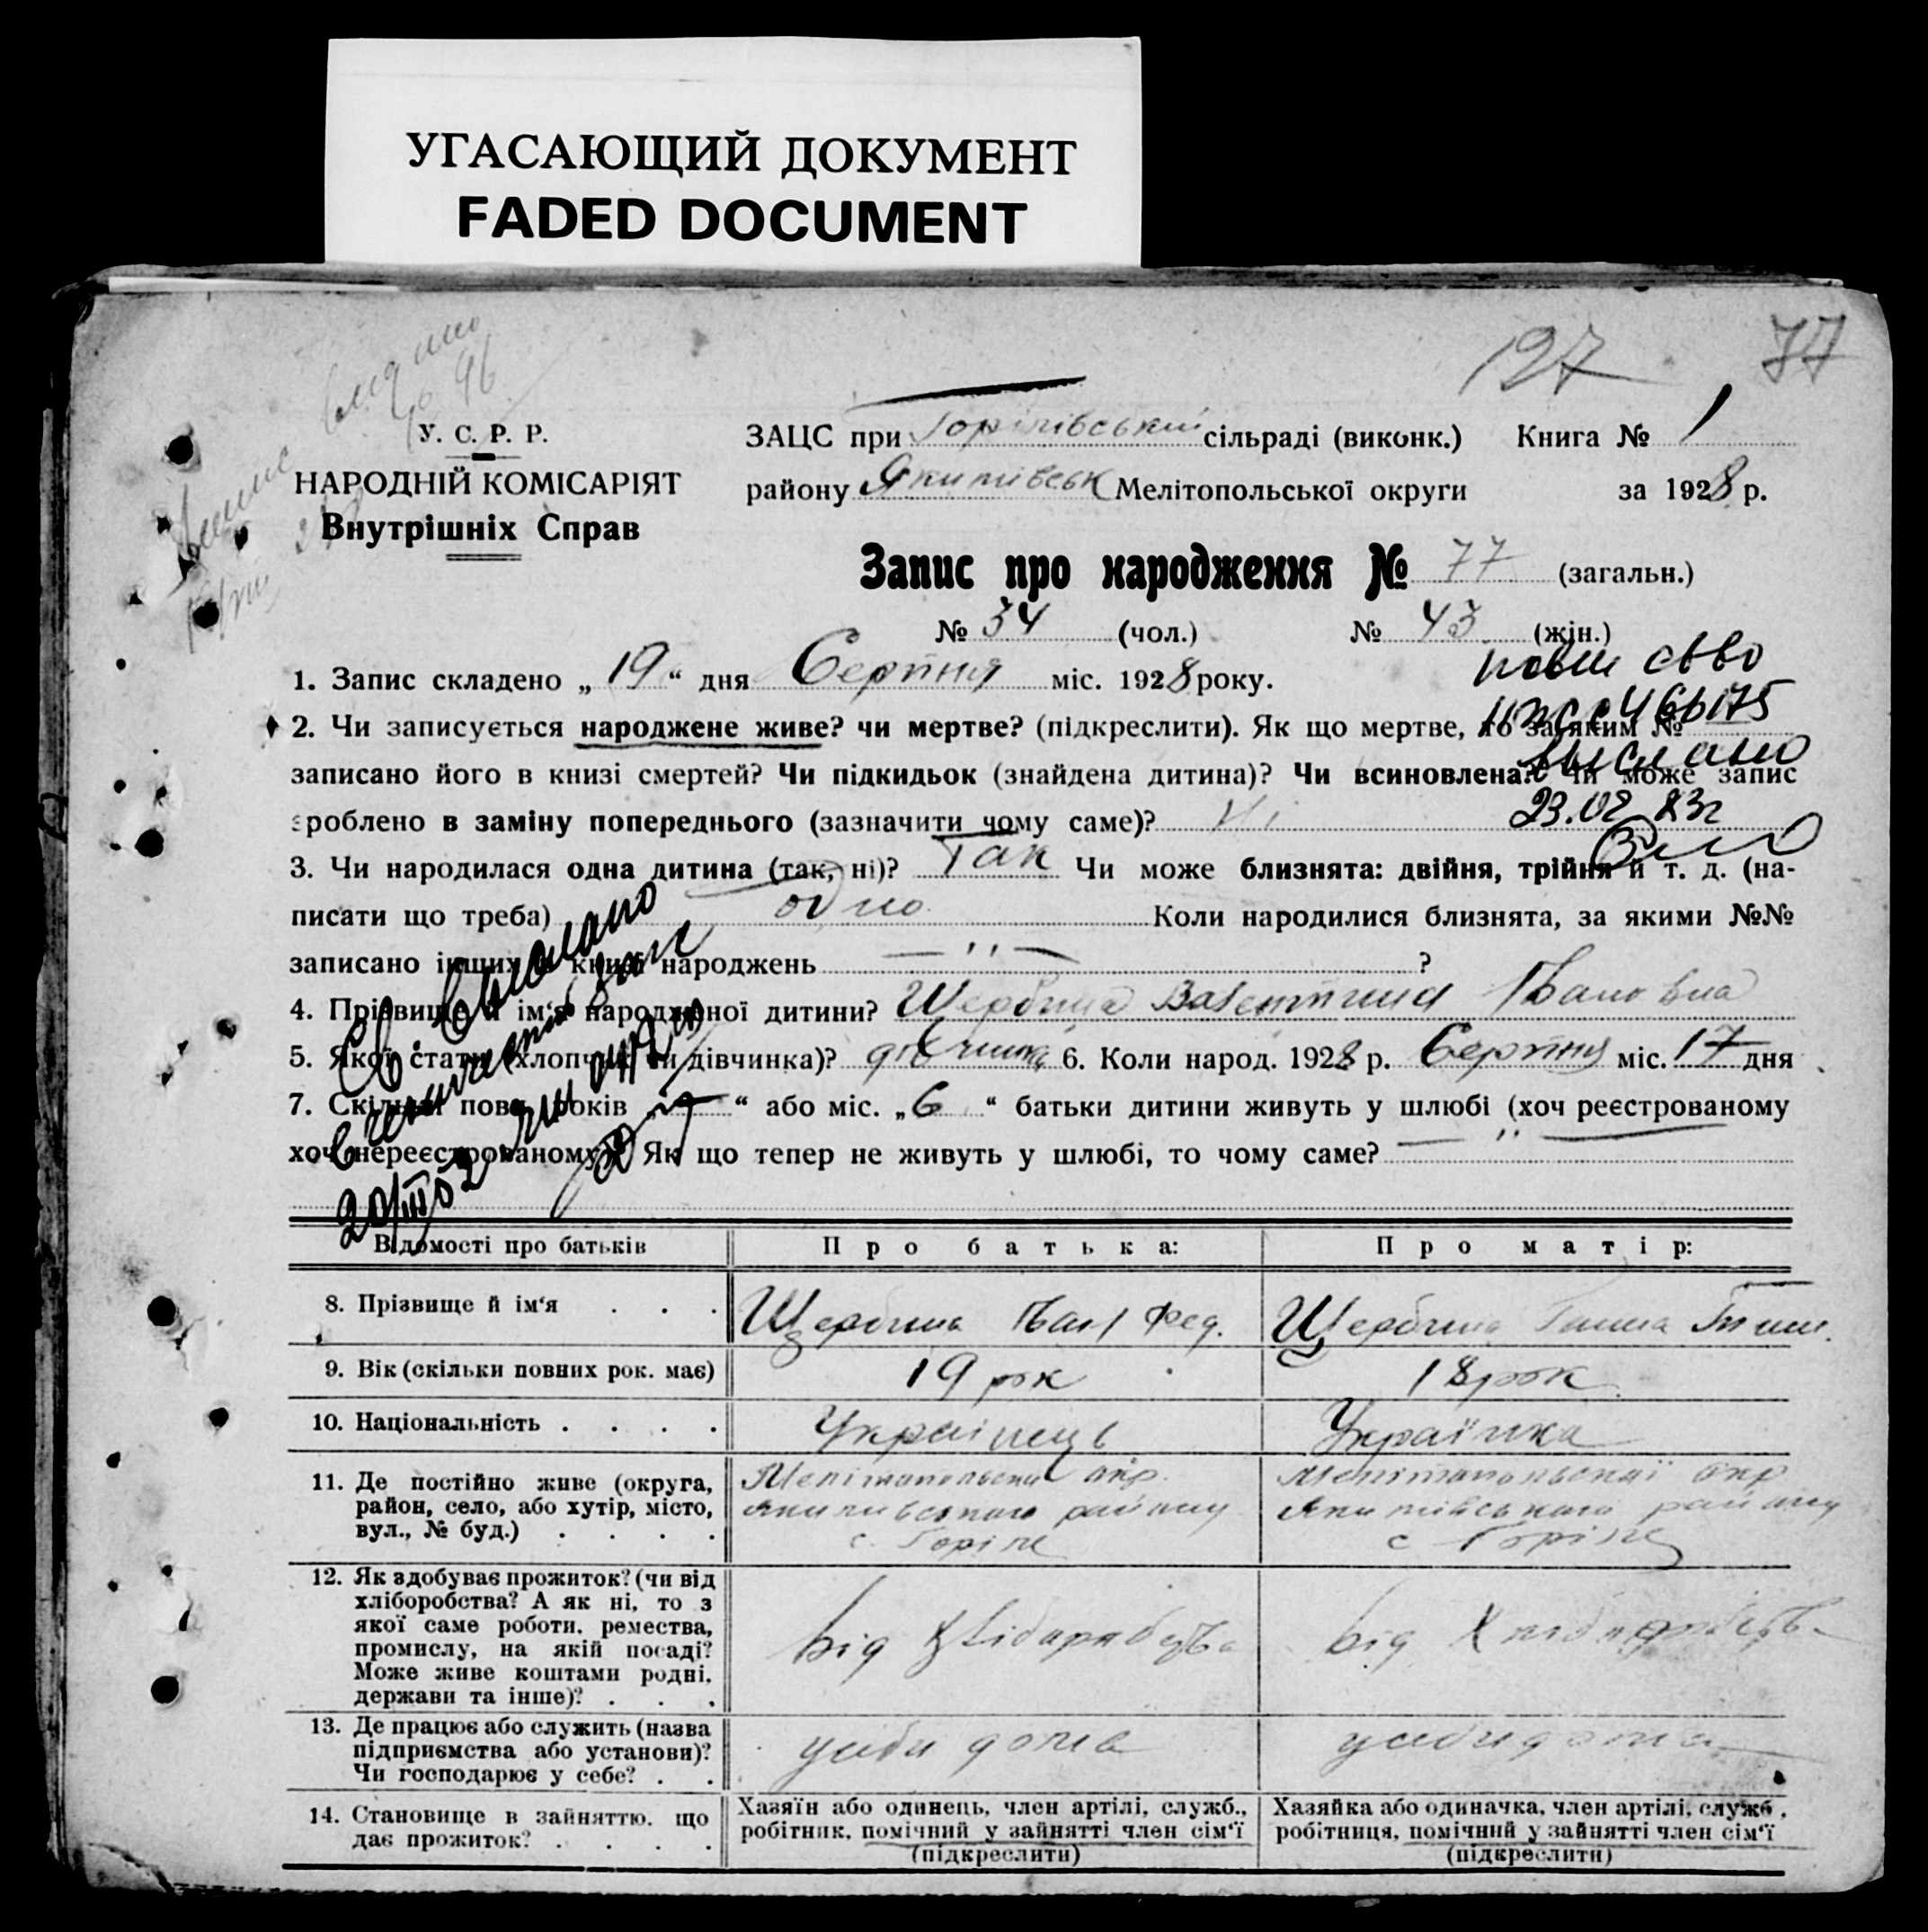 УГАСАЮЩИЙ ДОКУМЕНТ
FADED DOCUMENT
127 77
У. С. Р. Р.
НАРОДНІЙ КОМІСАРІЯТ
Внутрішніх Справ
ЗАЦС при Горілівський сільраді (виконк.) Книга № 1
району Якимівськ Мелітопольської округи за 1928 р.
Запис про народження № 77 (загальн.)
№ 34 (чол.) № 43 (жін.)
1. Запис складено „ 19 “ дня Серпня міс. 1928 року.
2. Чи записується народжене живе? чи мертве? (підкреслити). Як що мертве, то за яким №
записано його в книзі смертей? Чи підкидьок (знайдена дитина)? Чи всиновлена? Чи може запис
зроблено в заміну попереднього (зазначити чому саме)? Ні
23.02 83г
3. Чи народилася одна дитина (так, ні)? Так Чи може близнята: двійня, трійня й т. д. (на-
писати що треба) одно Коли народилися близнята, за якими №№
записано інших в книзі народжень — " — ?
4. Прізвище й ім'я народженої дитини? Щербина Валентина Івановна
5. Якої статі (хлопчик чи дівчинка)? дівчинка 6. Коли народ. 1928 р. Серпня міс. 17 дня
7. Скільки повн. років „ — “ або міс. „ 6 “ батьки дитини живуть у шлюбі (хоч реєстрованому
хоч нереєстрованому)? Як що тепер не живуть у шлюбі, то чому саме? — " —
Відомості про батьків Про батька: Про матір:
8. Прізвище й ім'я . . . Щербина Іван Фед. Щербина Ганна
9. Вік (скільки повних рок. має) 19 рок 18 рок
10. Національність . . . . Українець Українка
11. Де постійно живе (округа,
район, село, або хутір, місто,
вул., № буд.) . . . .
Мелітопольскої окр.
Якимівського району
с. Горіле
Мелітопольскої окр
Якимівського району
с Горіле
12. Як здобуває прожиток? (чи від
хліборобства? А як ні, то з
якої саме роботи, ремества,
промислу, на якій посаді?
Може живе коштами родні,
держави та інше)? . . .
від
від
13. Де працює або служить (назва
підприємства або установи)?
Чи господарює у себе? . .
дома
дома
14. Становище в зайняттю, що
дає прожиток? . . . .
Хазяїн або одинець, член артілі, служб.,
робітник, помічний у зайнятті член сім'ї
(підкреслити)
Хазяйка або одиначка, член артілі, служб.,
робітниця, помічний у зайнятті член сім'ї
(підкреслити)